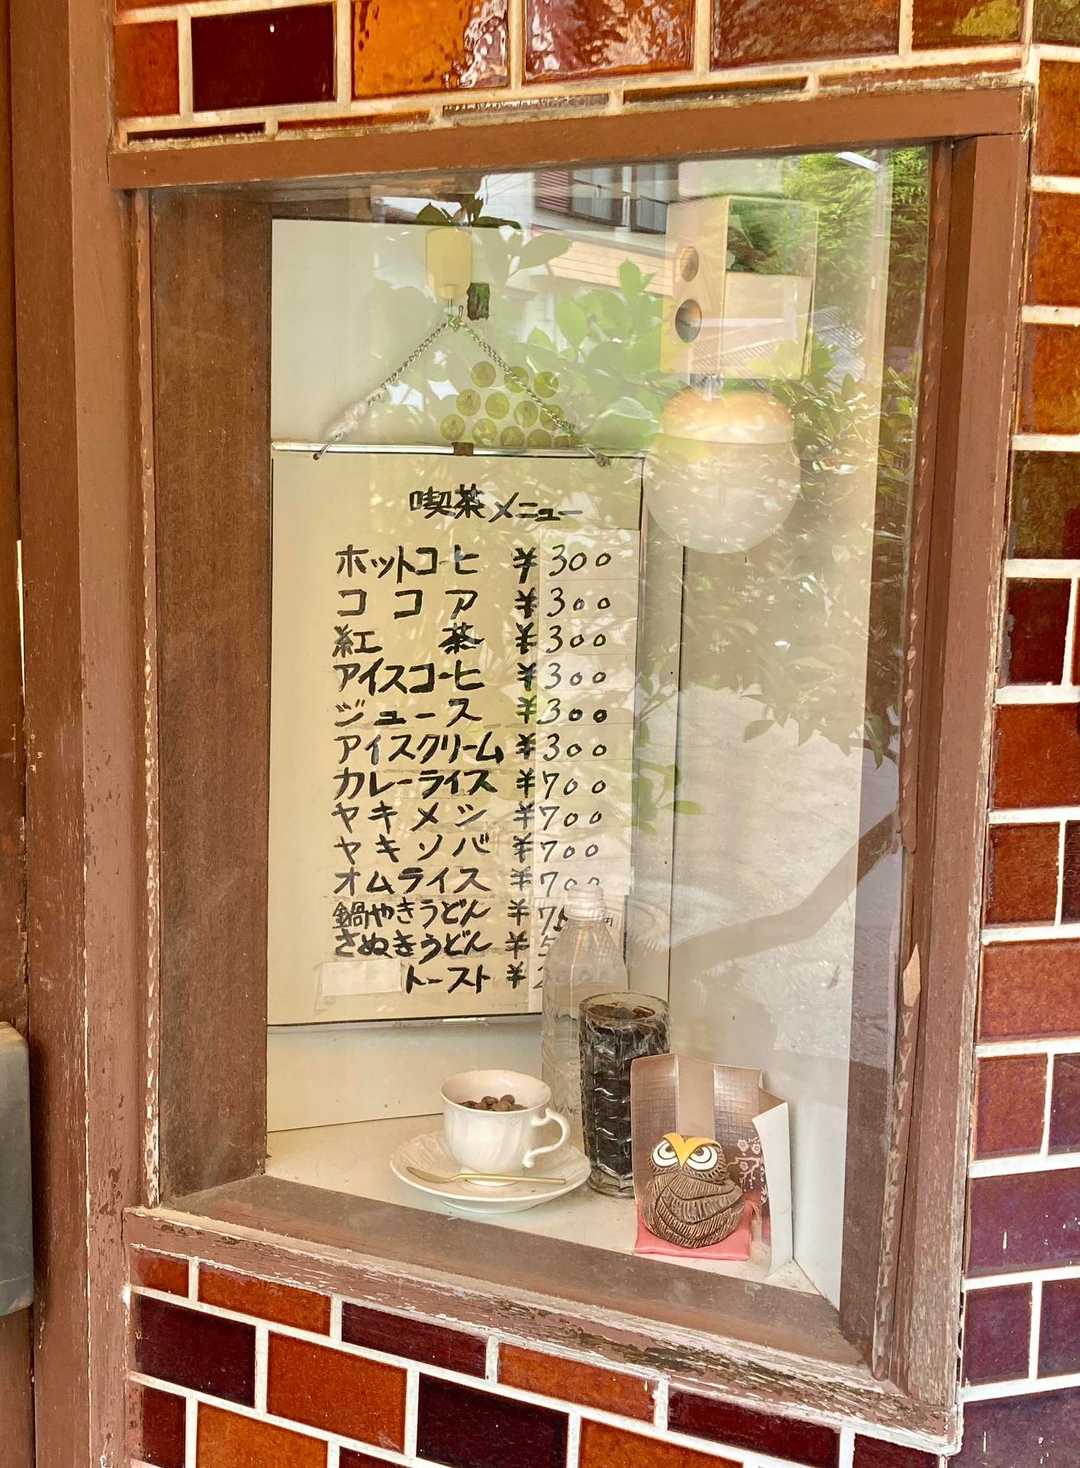 喫茶メニュー
ホットコーヒ ¥300
ココア ¥300
紅茶 ¥300
アイスコーヒ ¥300
ジュース ¥300
アイスクリーム ¥300
カレーライス ¥700
ヤキメシ ¥700
ヤキソバ ¥700
オムライス ¥700
鍋やきうどん ¥7
さぬきうどん ¥5
トースト ¥2